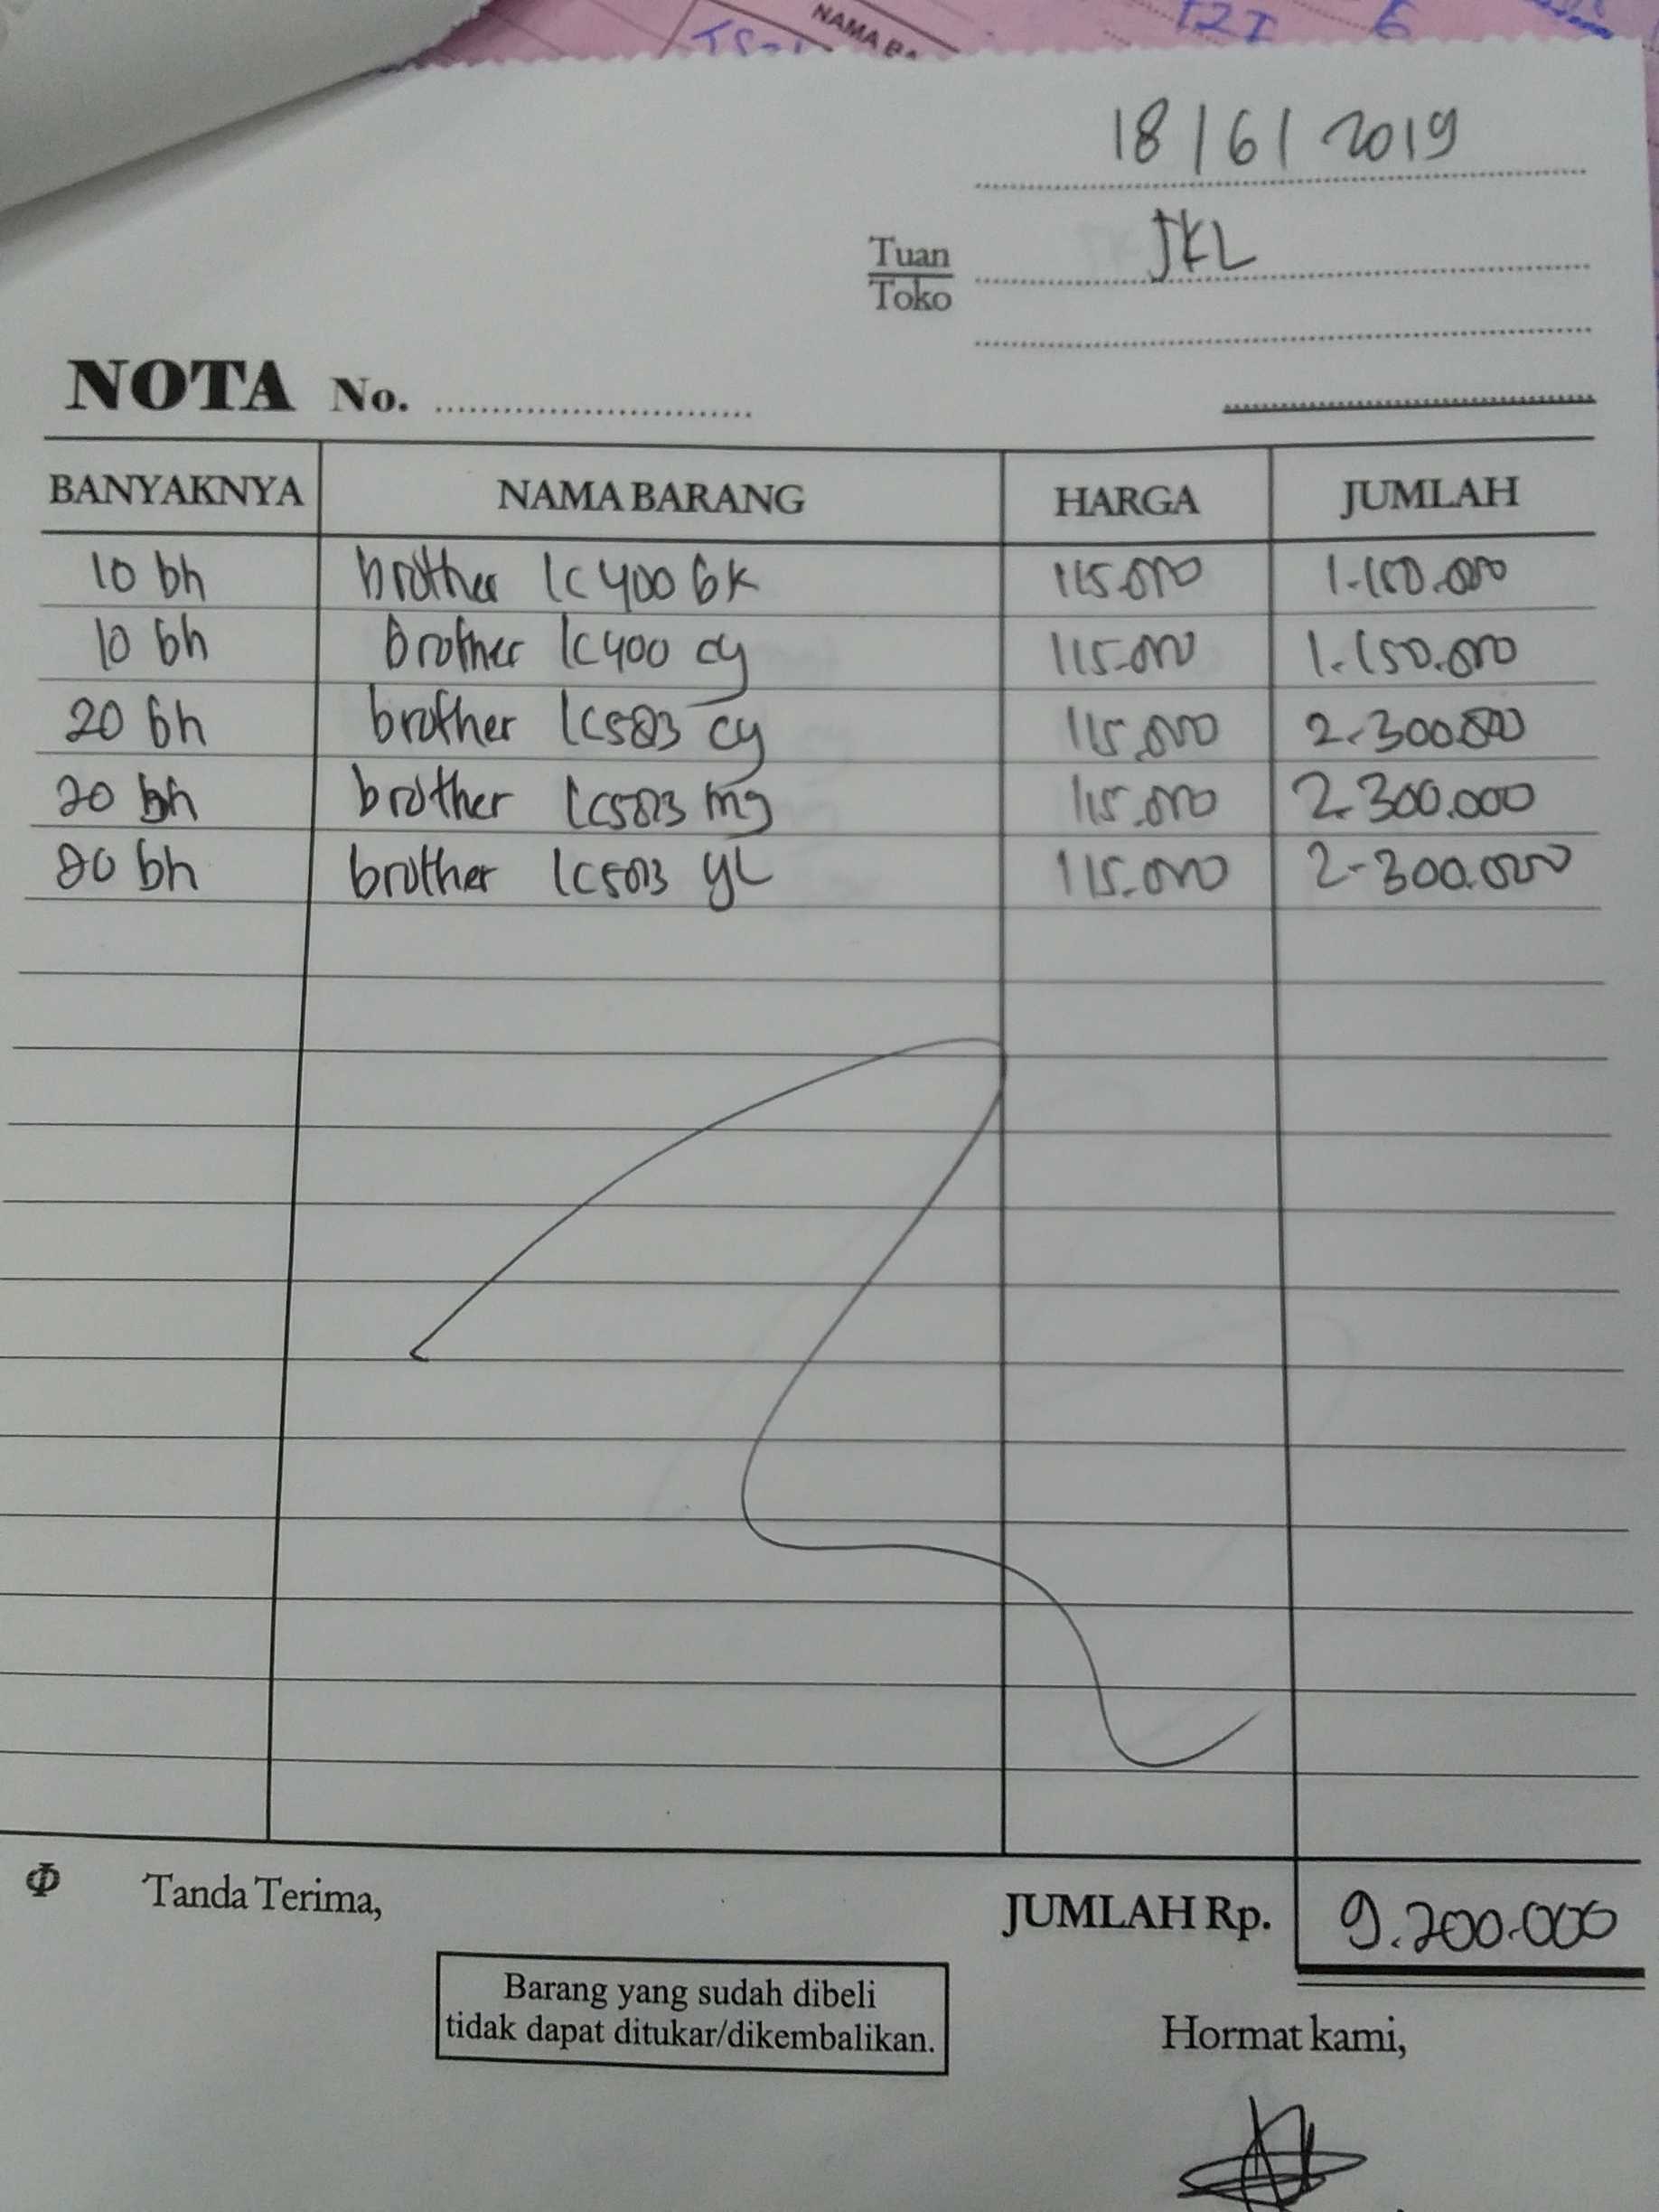 NAMA BA
121 6
18/6/2019
Tuan JKL
Toko
NOTA No.
BANYAKNYA NAMA BARANG HARGA JUMLAH
10 bh brother lc 400 bk 115.000 1.150.000
10 bh brother lc400 cy 115.000 1.150.000
20 bh brother lc583 cy 115.000 2.300.000
20 bh brother lc583 mg 115.000 2.300.000
20 bh brother lc583 yl 115.000 2.300.000
Tanda Terima, JUMLAH Rp. 9.200.000
Barang yang sudah dibeli
tidak dapat ditukar/dikembalikan.
Hormat kami,